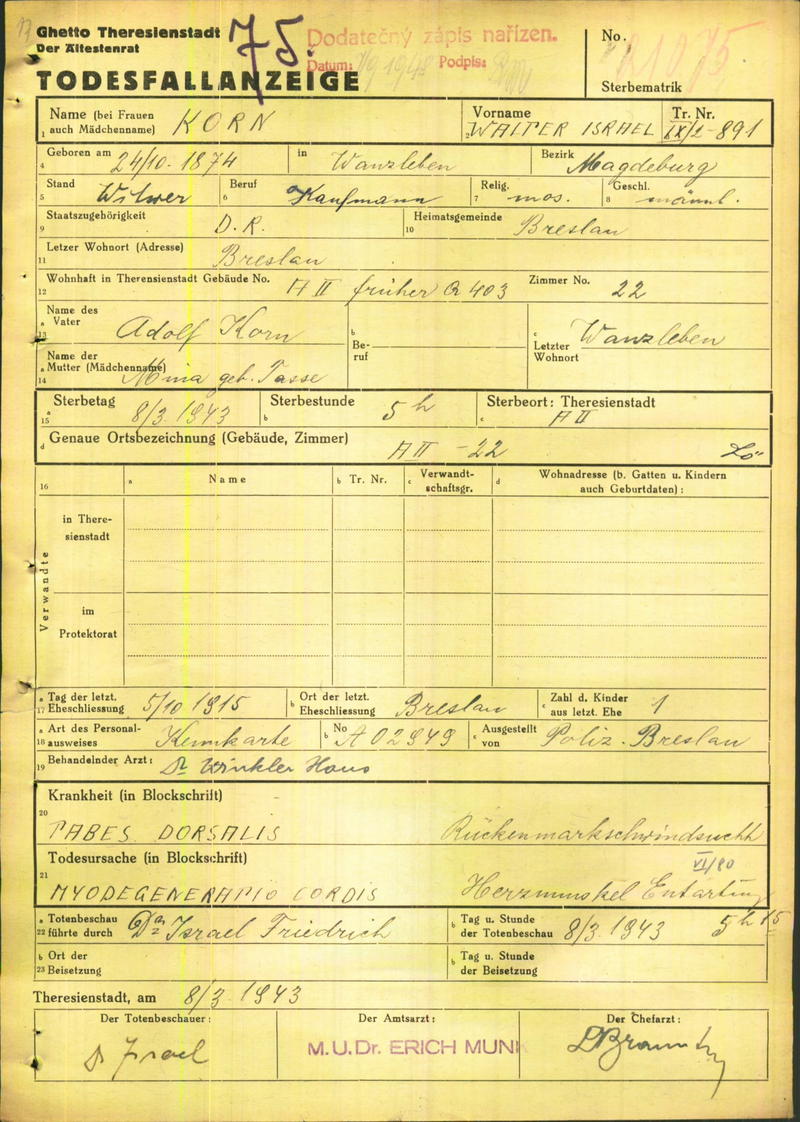 Ghetto Theresienstadt
Der Ältestenrat
75.
Dodatečný zápis nařízen.
Datum: Podpis:
No.
TODESFALLANZEIGE
Sterbematrik
1 Name (bei Frauen auch Mädchenname) KORN
2 Vorname WALTER ISRAEL
Tr. Nr. IX/2-891
4 Geboren am 24/10. 1874 in Wanzleben Bezirk Magdeburg
5 Stand Witwer 6 Beruf Kaufmann 7 Relig. mos. 8 Geschl. männl.
9 Staatszugehörigkeit D.R. 10 Heimatsgemeinde Breslau
11 Letzer Wohnort (Adresse) Breslau
12 Wohnhaft in Theresienstadt Gebäude No. A II früher Q 403 Zimmer No. 22
13 a Name des Vater Adolf Korn b Beruf c Letzter Wohnort Wanzleben
14 a Name der Mutter (Mädchenname) Mina geb. Tasse
15 a Sterbetag 8/3. 1943 b Sterbestunde 5 h c Sterbeort: Theresienstadt A II
d Genaue Ortsbezeichnung (Gebäude, Zimmer) A II - 22
16 a Name b Tr. Nr. c Verwandtschaftsgr. d Wohnadresse (b. Gatten u. Kindern auch Geburtdaten) :
Verwandte
in Theresienstadt
im Protektorat
17 a Tag der letzt. Eheschliessung 5/10 1915 b Ort der letzt. Eheschliessung Breslau c Zahl d. Kinder aus letzt. Ehe 1
18 a Art des Personalausweises Kennkarte b No A 02949 c Ausgestellt von Poliz. Breslau
19 Behandelnder Arzt : Dr Winkler Hans
Krankheit (in Blockschrift)
20 TABES DORSALIS Rückenmarkschwindsucht
Todesursache (in Blockschrift) VI/80
21 MYODEGENERATIO CORDIS Herzmuskel Entartung
22 a Totenbeschau führte durch Dr Israel Friedrich b Tag u. Stunde der Totenbeschau 8/3. 1943 5 h 15
23 b Ort der Beisetzung b Tag u. Stunde der Beisetzung
Theresienstadt, am 8/3. 1943
Der Totenbeschauer : Der Amtsarzt : Der Chefarzt :
Dr Israel M.U.Dr. ERICH MUNK